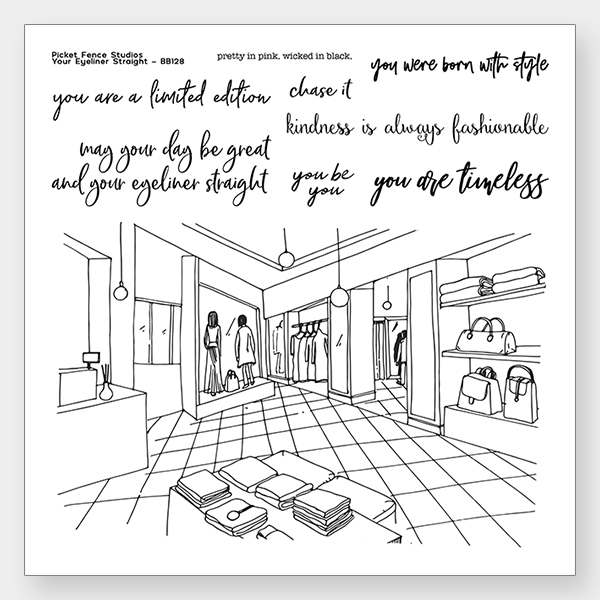 Picket Fence Studios
Your Eyeliner Straight - BB128
pretty in pink, wicked in black.
you were born with style
you are a limited edition
chase it
kindness is always fashionable
may your day be great
and your eyeliner straight
you be
you
you are timeless